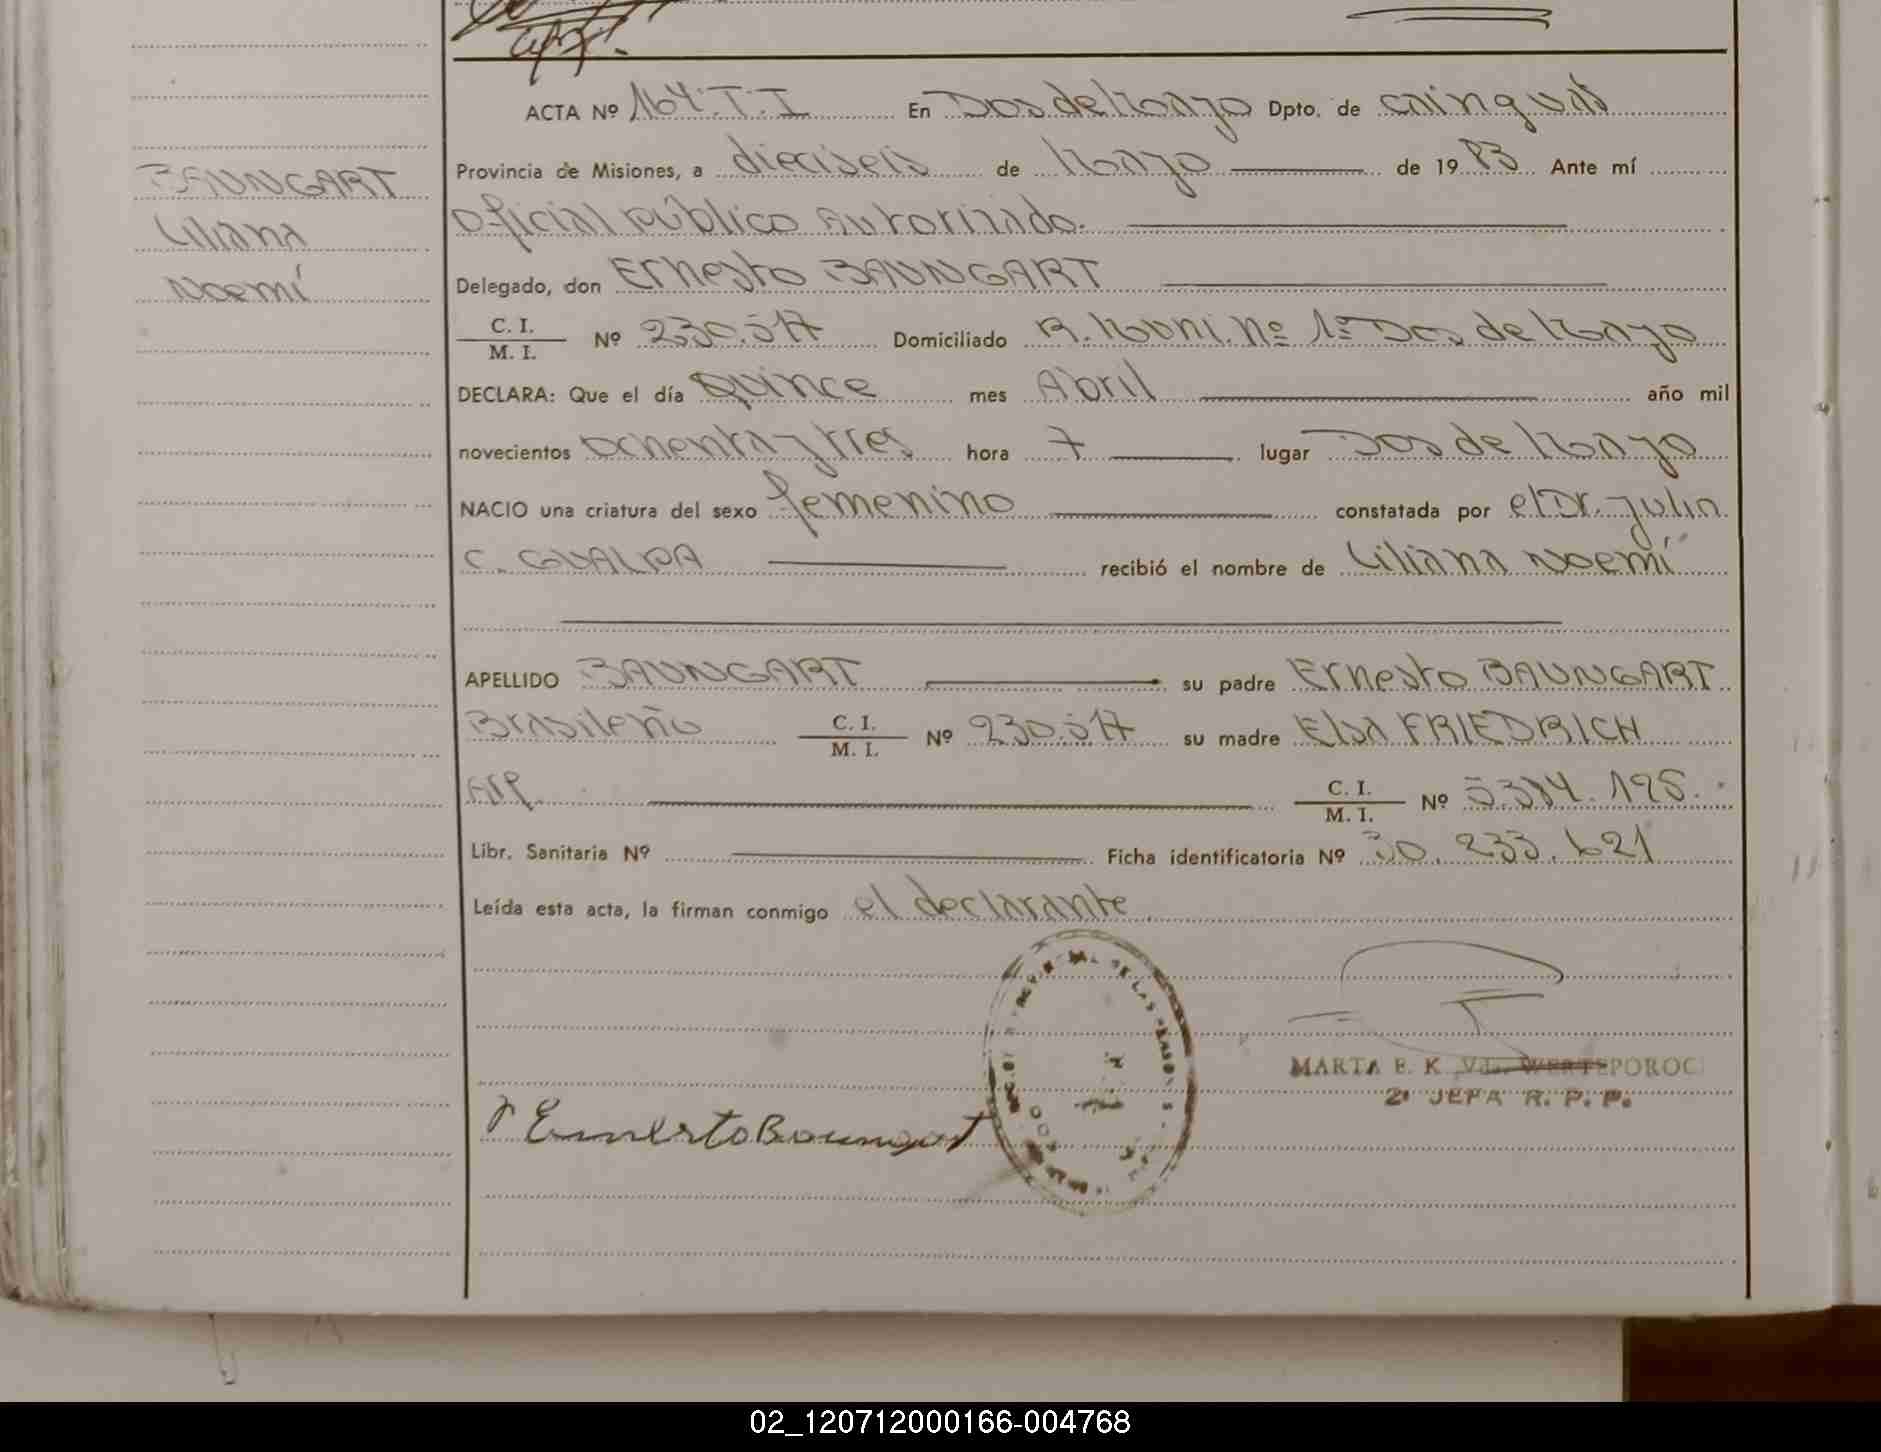 ACTA Nº 164. T. I En Dos de Mayo Dpto. de Cainguás
Provincia de Misiones, a dieciseis de Mayo de 19 83 Ante mí
BAUNGART
Oficial público Autorizado.
Liliana
Noemí
Delegado, don Ernesto BAUNGART
C. I.
M. I. Nº 230.517 Domiciliado R. Muni. Nº 1º Dos de Mayo
DECLARA: Que el día Quince mes Abril año mil
novecientos Ochenta y tres hora 7 lugar Dos de Mayo
NACIO una criatura del sexo femenino constatada por el Dr. Julia
C. recibió el nombre de Liliana Noemí
APELLIDO BAUNGART su padre Ernesto BAUNGART
Brasileño C. I.
M. I. Nº 230.517 su madre Elsa FRIEDRICH
Arg. C. I.
M. I. Nº
Libr. Sanitaria Nº Ficha identificatoria Nº 30.233.621
Leída esta acta, la firman conmigo el declarante
MARTA E. K. Vda.
2º JEFA R. P. P.
Ernesto Baungart
02_120712000166-004768